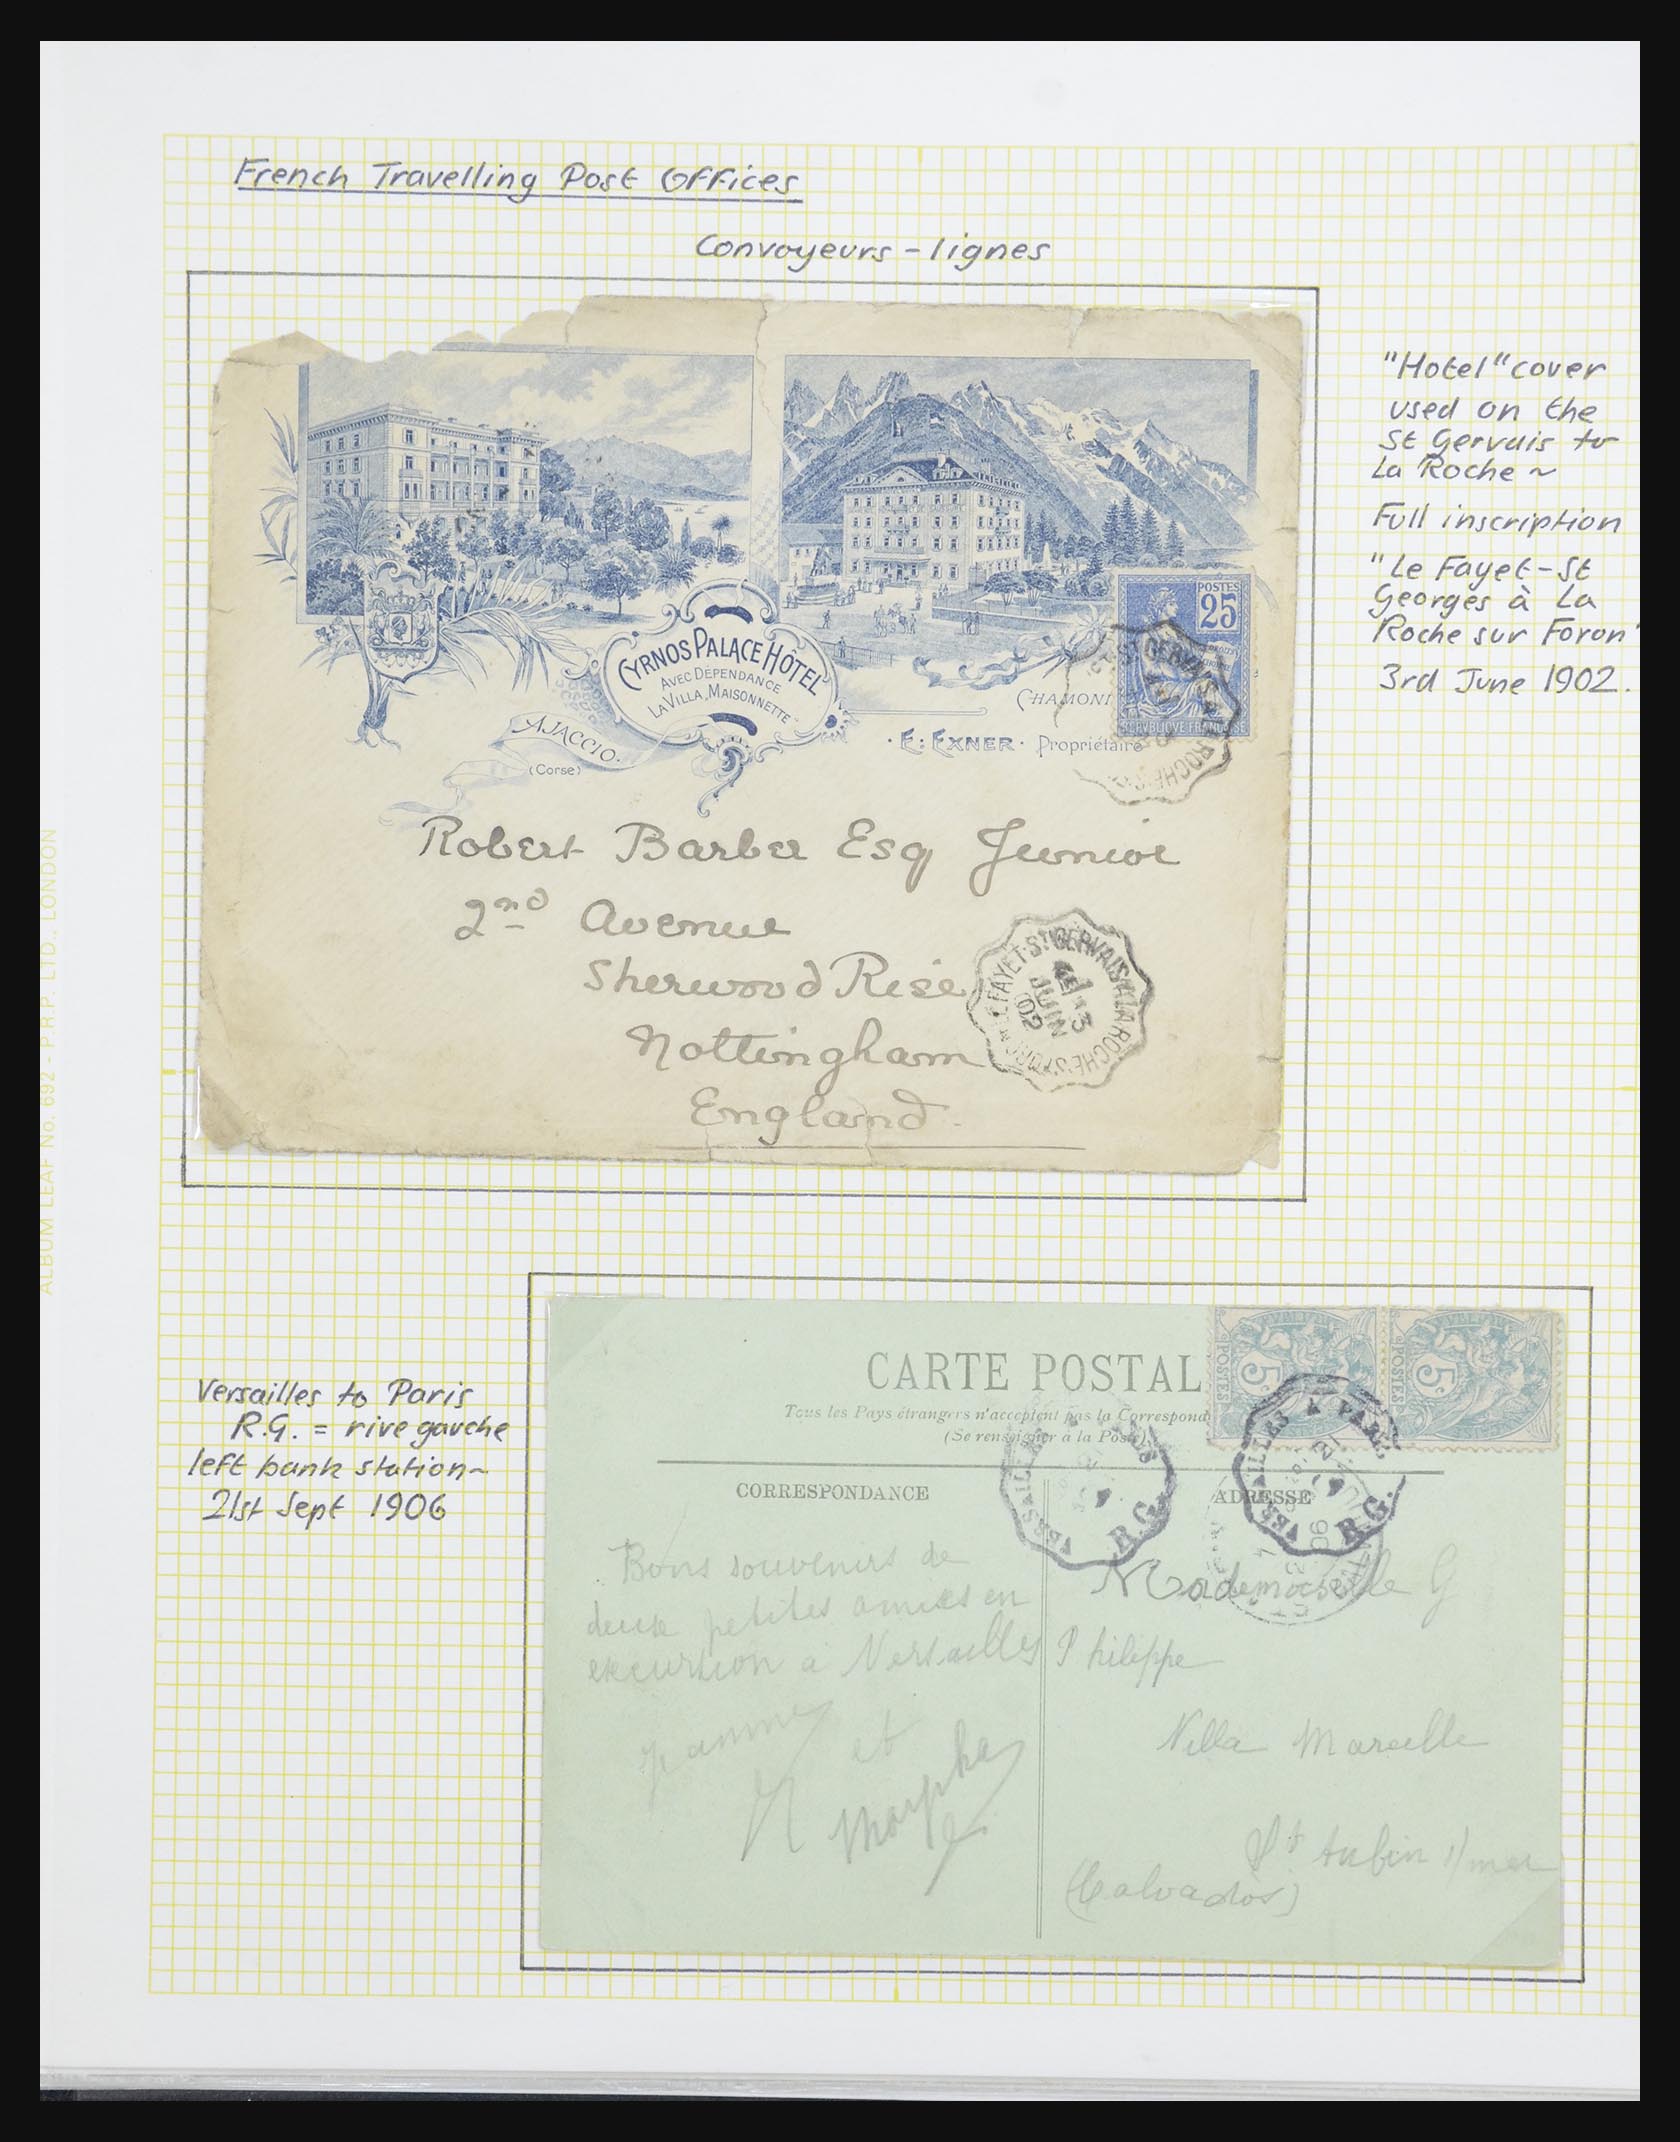 French Travelling Post Offices
Convoyeurs - lignes
"Hotel" cover
used on the
St Gervais to
La Roche ~
Full inscription
"Le Fayet - St
Georges à La
Roche sur Foron"
3rd June 1902.
POSTES
25
RÉPUBLIQUE FRANÇAISE
CYRNOS PALACE HÔTEL
AVEC DÉPENDANCE
LA VILLA, MAISONNETTE
AJACCIO.
(Corse)
CHAMONI
· E: EXNER · Propriétaire
Robert Barber Esq Junior
2nd Avenue
Sherwood Rise
Nottingham
England.
LE FAYET-ST GERVAIS A LA ROCHE S/FORON
3
JUIN
02
ALBUM LEAF No. 692 - P.R.P. LTD., LONDON
Versailles to Paris
R.G. = rive gauche
left bank station ~
21st Sept 1906
CARTE POSTAL
Tous les Pays étrangers n'acceptent pas la Correspond
(Se renseigner à la Poste)
5c POSTES
5c POSTES
VERSAILLES A PARIS
R.G.
VERSAILLES A PARIS
R.G.
CORRESPONDANCE
ADRESSE
Bons souvenirs de
deux petites amies en
excursion à Versailles
et
Mademoiselle G
Philippe
Villa Marcelle
St Aubin s/mer
(Calvados)